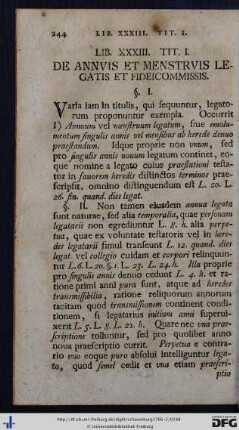 244 LIB. XXXIII. TIT. I.
LIB. XXXIII. TIT. I.
DE ANNVIS ET MENSTRVIS LE-
GATIS ET FIDEICOMMISSIS.
§. I.
Varia iam in titulis, qui sequuntur, legato-
rum proponuntur exempla. Occurrit
1) Annuum vel menstruum legatum, siue emolu-
mentum singulis annis vel mensibus ab herede denuo
praestandum. Idque proprie non vnum, sed
pro singulis annis nouum legatum continet, eo-
que nomine a legato cuius praestationi testa-
tor in fauorem heredis distinctos terminos prae-
scripsit, omnino distinguendum est L. 20. L.
26. fin. quand. dies legat.
§. II. Non tamen eiusdem annua legata
sunt naturae, sed alia temporalia, quae personam
legatarii non egrediuntur L. 8. h. alia perpe-
tua, quae ex voluntate testatoris vel in here-
des legatarii simul transeunt L. 12. quand. dies
legat. vel collegio cuidam et corpori relinquun-
tur L. 6. L. 20. §. 1. L. 23. L. 24. h. Illa proprie
pro singulis annis denuo cedunt L. 4. h. et ra-
tione primi anni pura sunt, atque ad heredes
transmissibilia, ratione reliquorum annorum
tacitam quod transmissionem continent condi-
tionem, si legatarius initium anni superui-
xerit L. 5. L. 8. L. 22. h. Quare nec vna prae-
scriptione tolluntur, sed pro quolibet anno
noua praescriptio currit. Perpetua e contra-
rio vno eoque puro absolui intelliguntur lega-
to, quod semel cedit et vna etiam praescri-
ptio
http://dl.ub.uni-freiburg.de/diglit/schaumburg1766-2/0246
© Universitätsbibliothek Freiburg
DFG